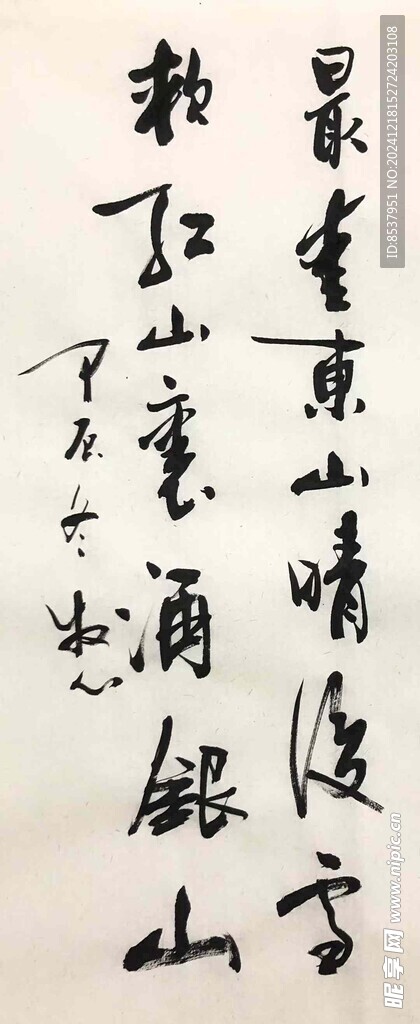 最愛東山晴後雪
軟紅山裏涌銀山
甲辰冬
ID:8537951 NO:20241218152724203108
昵享网 www.nipic.cn